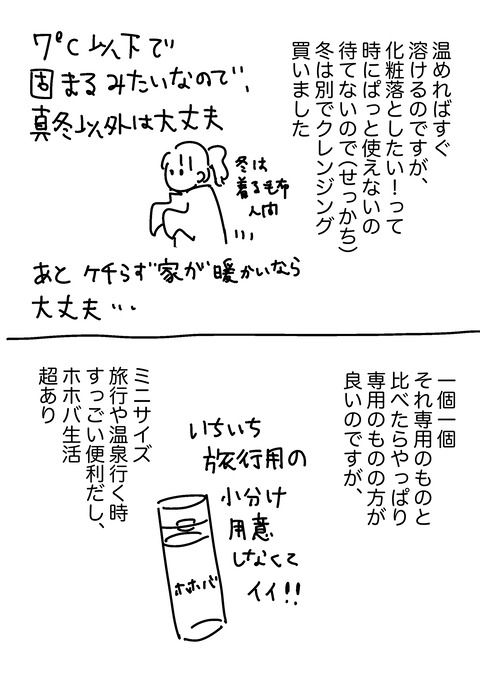 温めればすぐ
溶けるのですが、
化粧落としたい！って
時にぱっと使えないの
待てないので(せっかち)
冬は別でクレンジング
買いました
7℃以下で
固まるみたいなので、
真冬以外は大丈夫
冬は
着る毛布
人間
あと ケチらず家が暖かいなら
大丈夫…
一個一個
それ専用のものと
比べたらやっぱり
専用のものの方が
良いのですが、
いちいち
旅行用の
小分け
用意
しなくて
イイ!!
ホホバ
ミニサイズ
旅行や温泉行く時
すっごい便利だし、
ホホバ生活
超あり